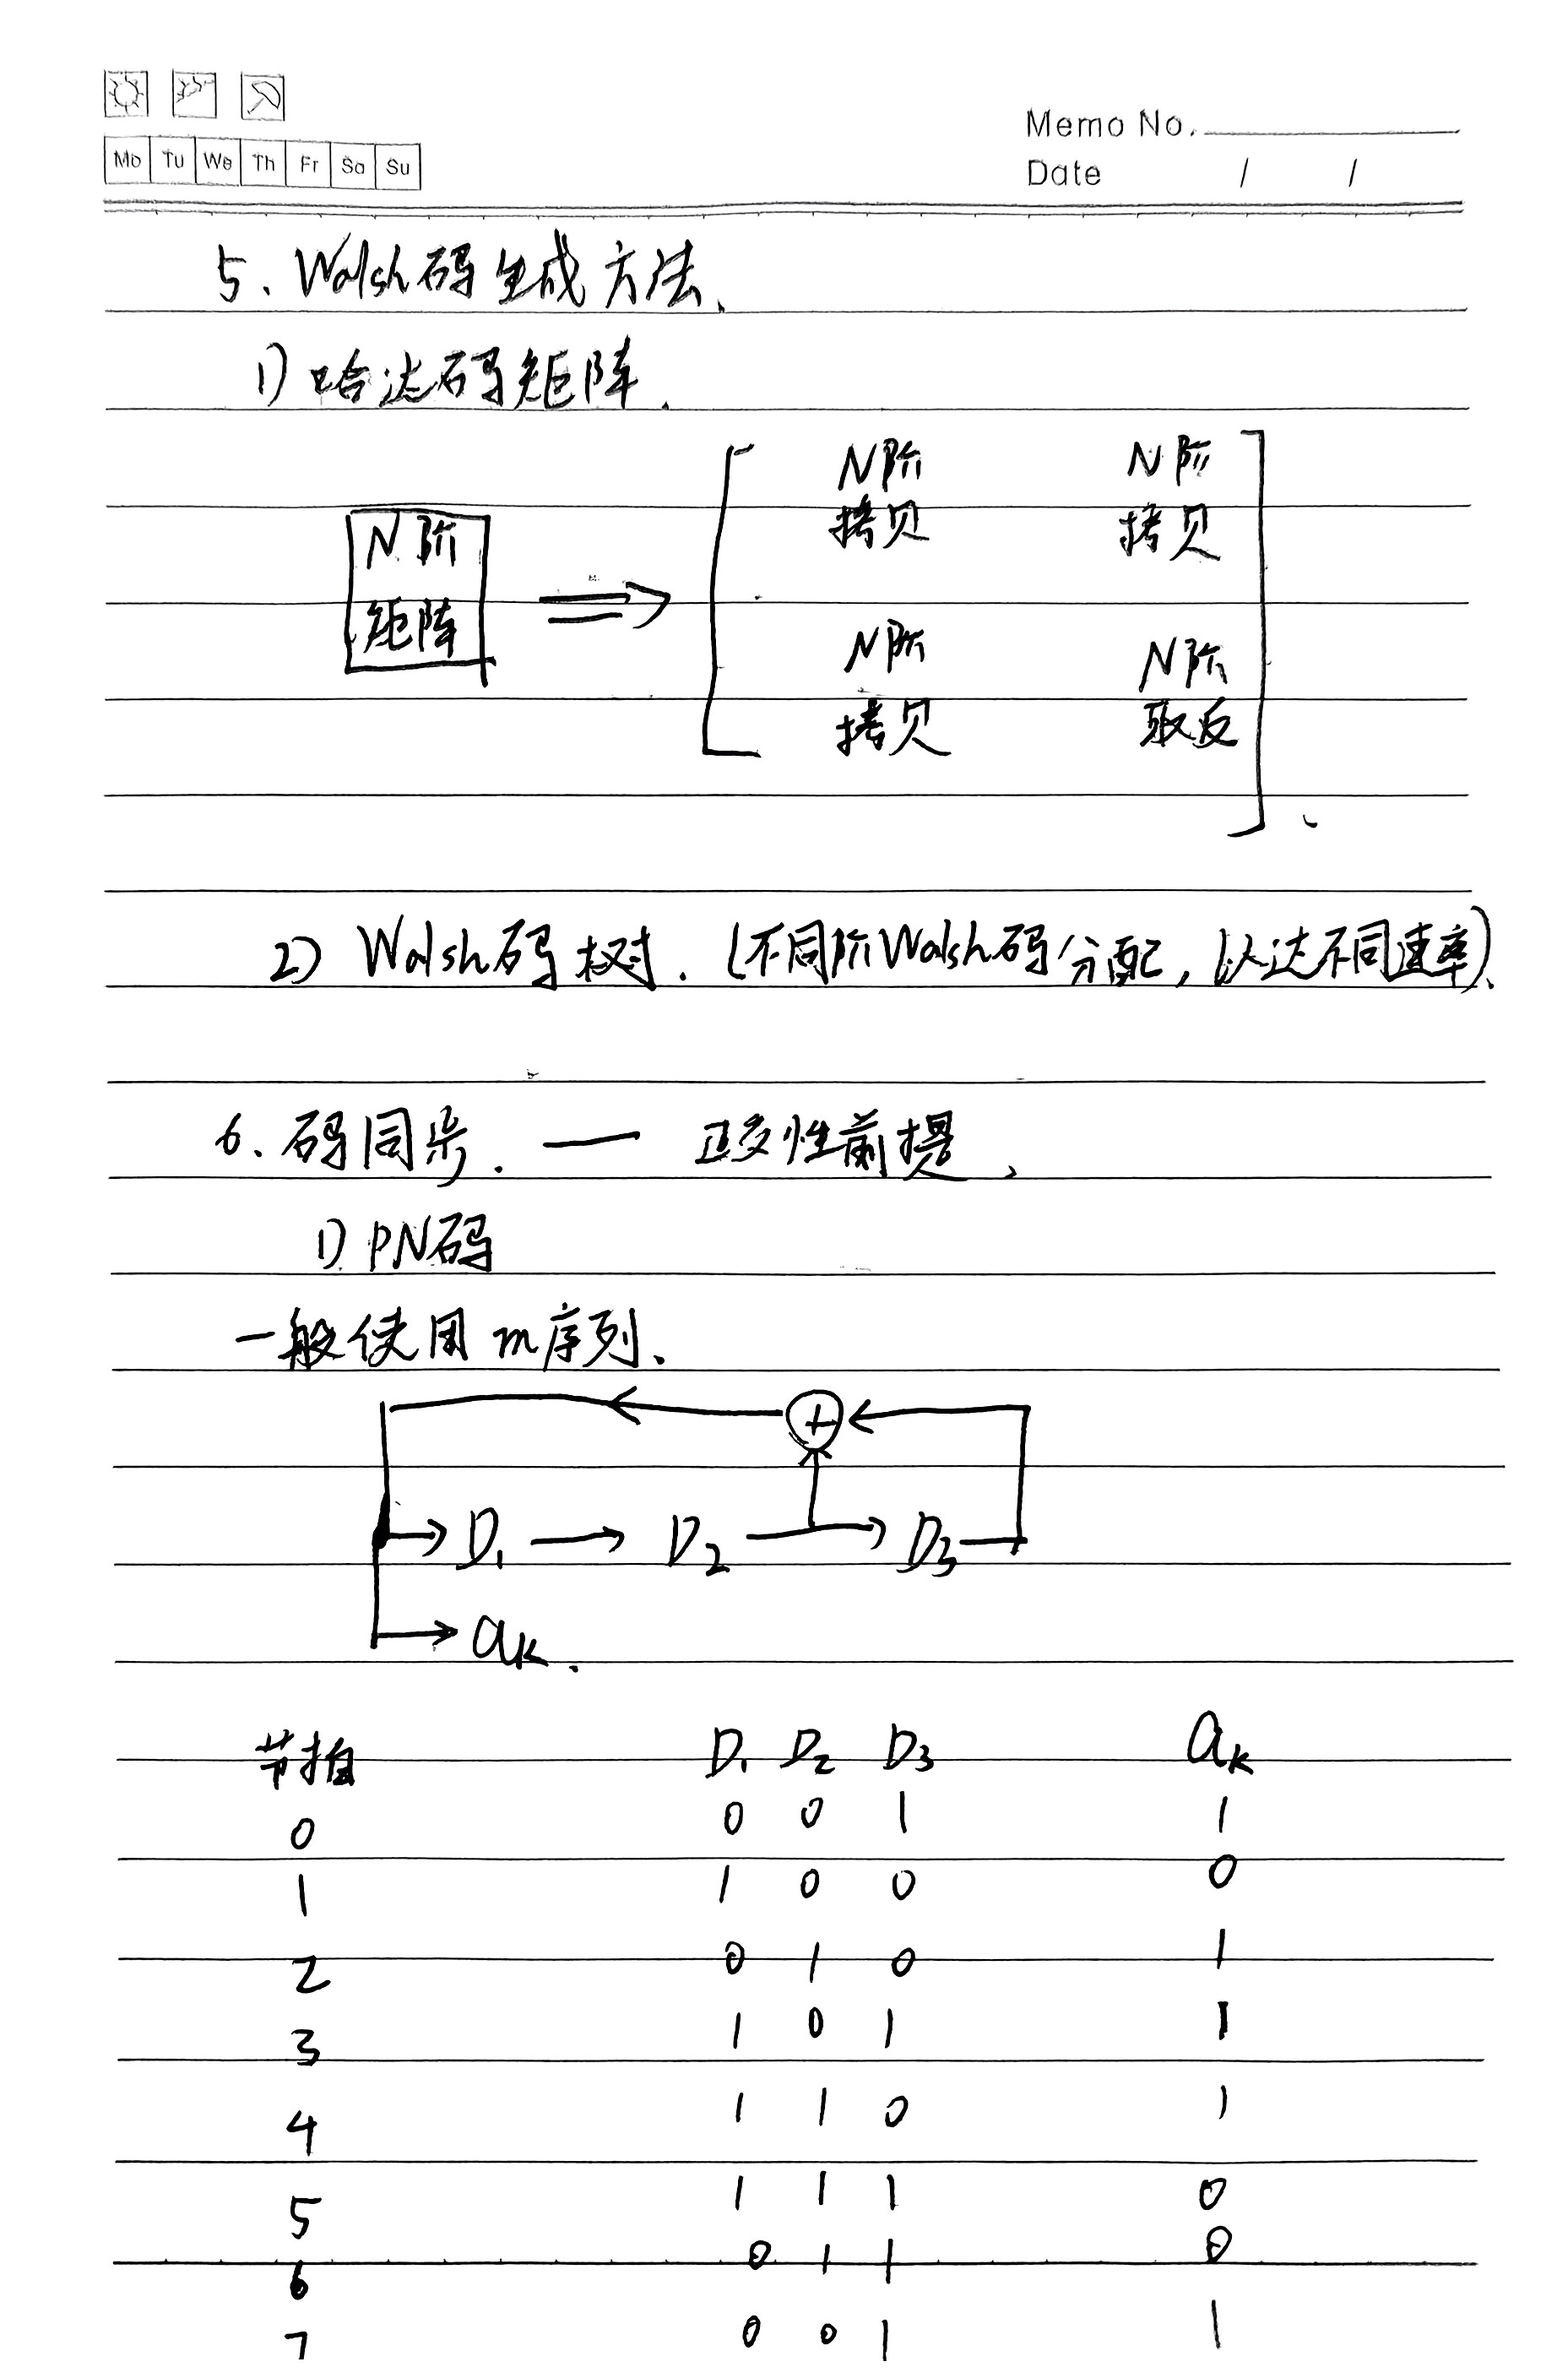 Mo Tu We Th Fr Sa Su
Memo No.
Date / /
5、Walsh码生成方法、
1) 哈达码矩阵.
N阶
矩阵
N阶 N阶
拷贝 拷贝
N阶 N阶
拷贝 取反
2) Walsh码树.(不同阶Walsh码分配,以达不同速率)、
6、码同步. — 正交性前提、
1) PN码
一般使用m序列、
+
D₁ → D₂ → D₃
aₖ.
节拍 D₁ D₂ D₃ aₖ
0 0 0 1 1
1 1 0 0 0
2 0 1 0 1
3 1 0 1 1
4 1 1 0 1
5 1 1 1 0
6 0 1 1 0
7 0 0 1 1